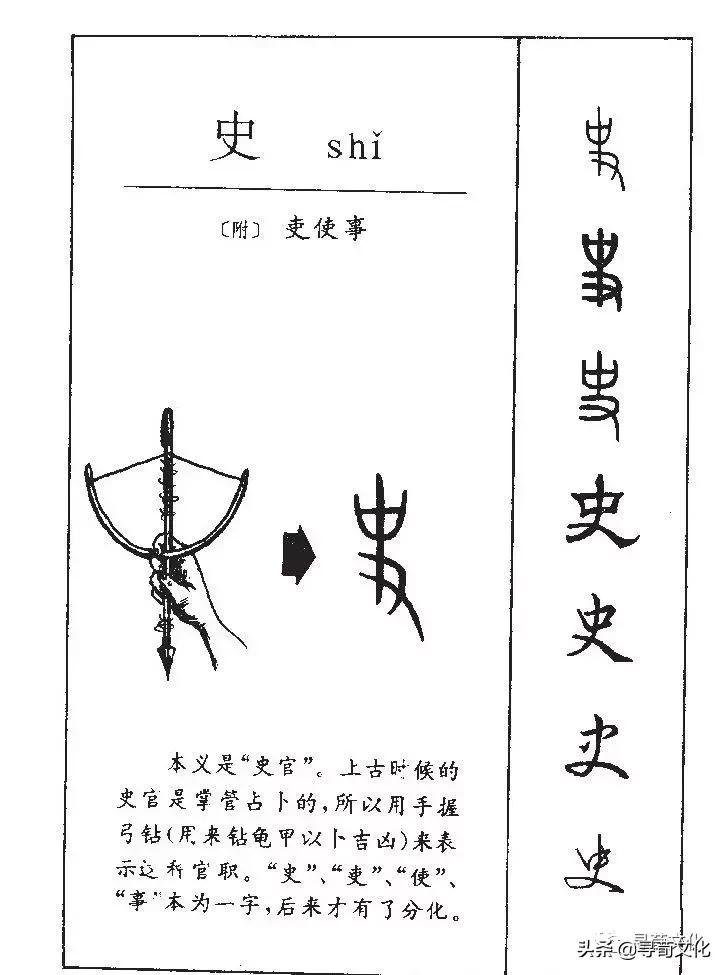 史 shǐ
〔附〕 吏使事
本义是“史官”。上古时候的
史官是掌管占卜的,所以用手握
弓钻(用来钻龟甲以卜吉凶)来表
示这种官职。“史”、“吏”、“使”、
“事”本为一字,后来才有了分化。
史
史
史
史
史
史
史
头条@寻荀文化